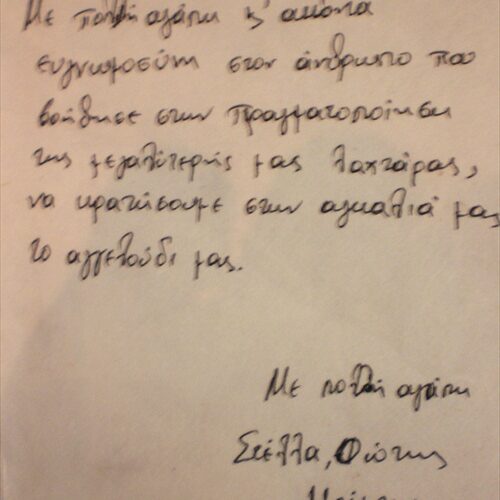 Με πολλή αγάπη κ' αιώνια
ευγνωμοσύνη στον άνθρωπο που
βοήθησε στην πραγματοποίηση
της μεγαλύτερης μας λαχτάρας,
να κρατήσουμε στην αγκαλιά μας
το αγγελούδι μας.
Με πολλή αγάπη
Στέλλα, Φώτης